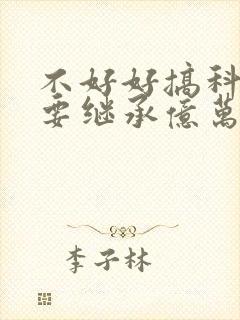 不好好搞科
要继承億萬
李子林